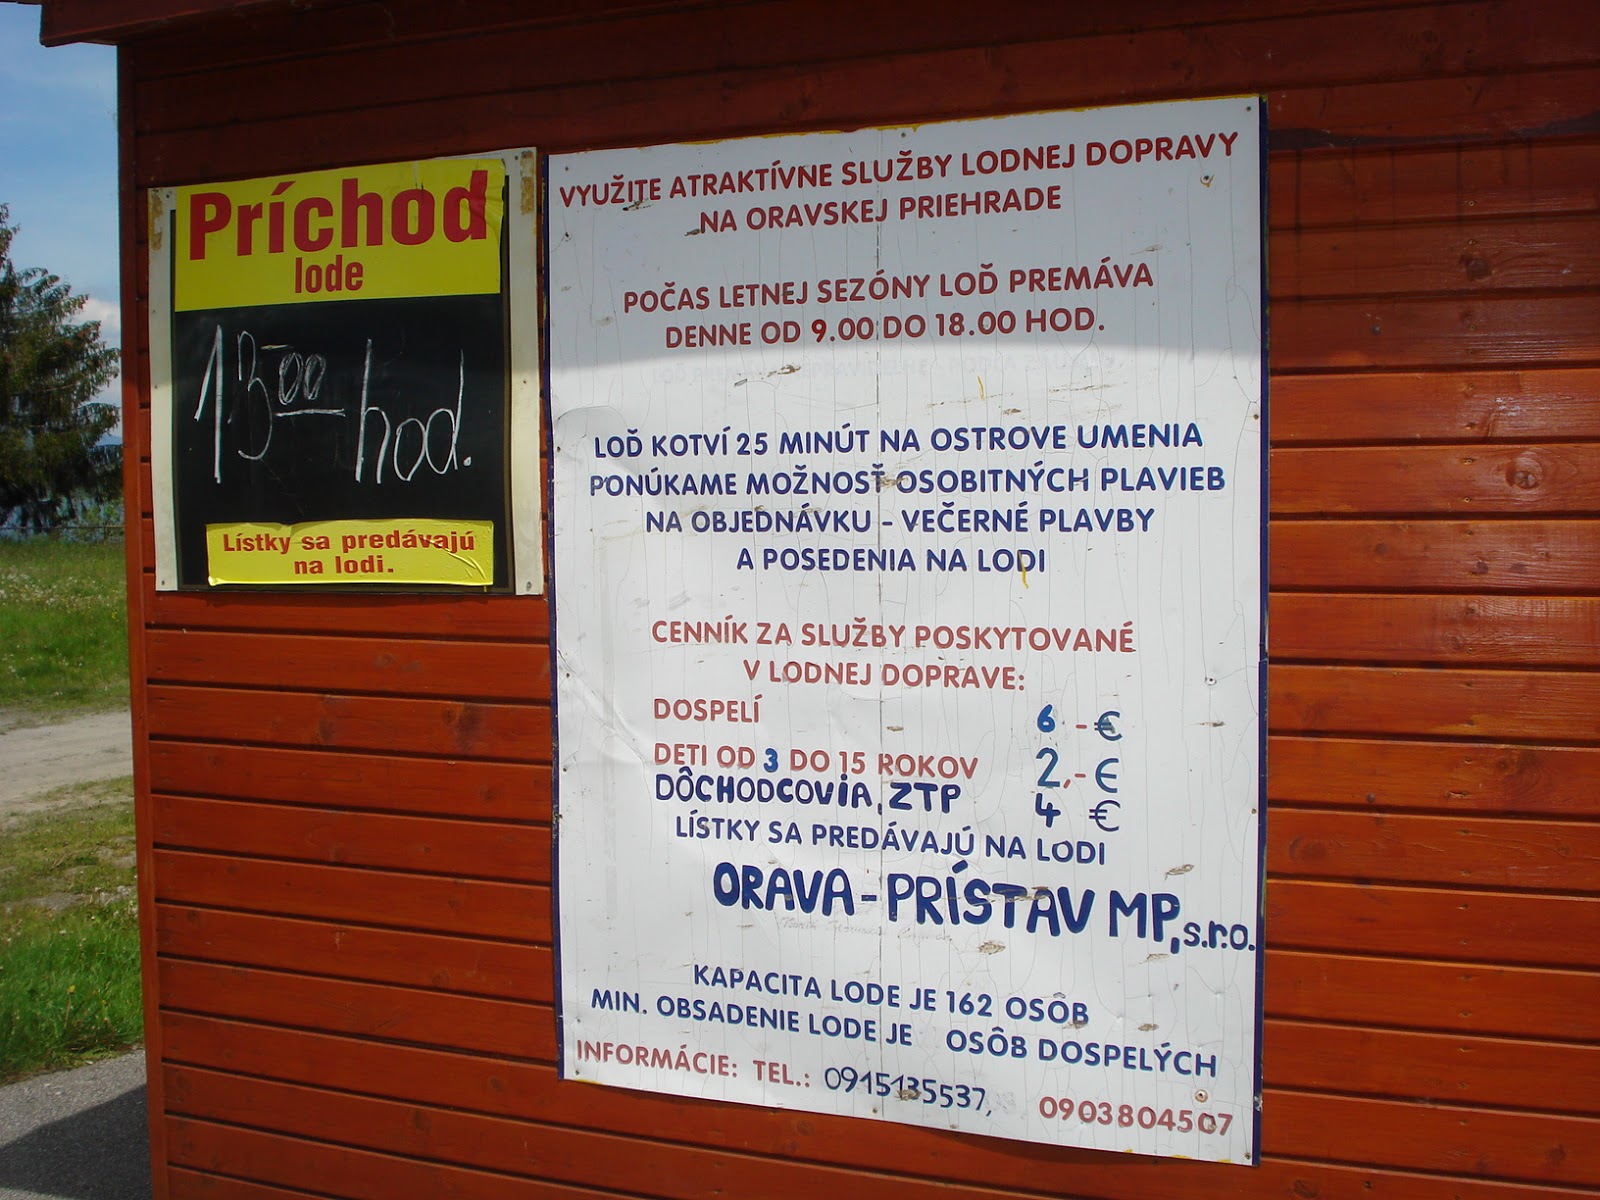 Príchod
lode
13⁰⁰ hod.
Lístky sa predávajú
na lodi.
VYUŽITE ATRAKTÍVNE SLUŽBY LODNEJ DOPRAVY
NA ORAVSKEJ PRIEHRADE
POČAS LETNEJ SEZÓNY LOĎ PREMÁVA
DENNE OD 9.00 DO 18.00 HOD.
LOĎ KOTVÍ 25 MINÚT NA OSTROVE UMENIA
PONÚKAME MOŽNOSŤ OSOBITNÝCH PLAVIEB
NA OBJEDNÁVKU - VEČERNÉ PLAVBY
A POSEDENIA NA LODI
CENNÍK ZA SLUŽBY POSKYTOVANÉ
V LODNEJ DOPRAVE:
DOSPELÍ 6 -€
DETI OD 3 DO 15 ROKOV 2,-€
DÔCHODCOVIA, ZTP 4 €
LÍSTKY SA PREDÁVAJÚ NA LODI
ORAVA-PRÍSTAV MP, s.r.o.
KAPACITA LODE JE 162 OSÔB
MIN. OBSADENIE LODE JE OSÔB DOSPELÝCH
INFORMÁCIE: TEL.: 0915135537, 0903804507